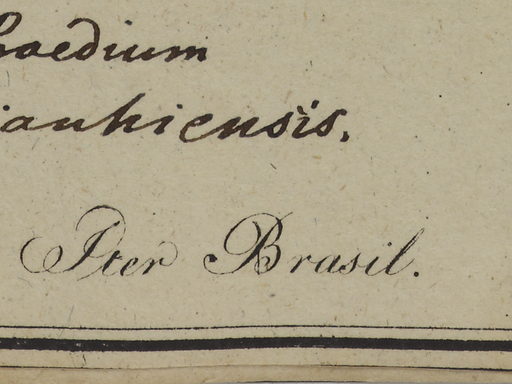 raedium
iauhiensis.
Iter Brasil.